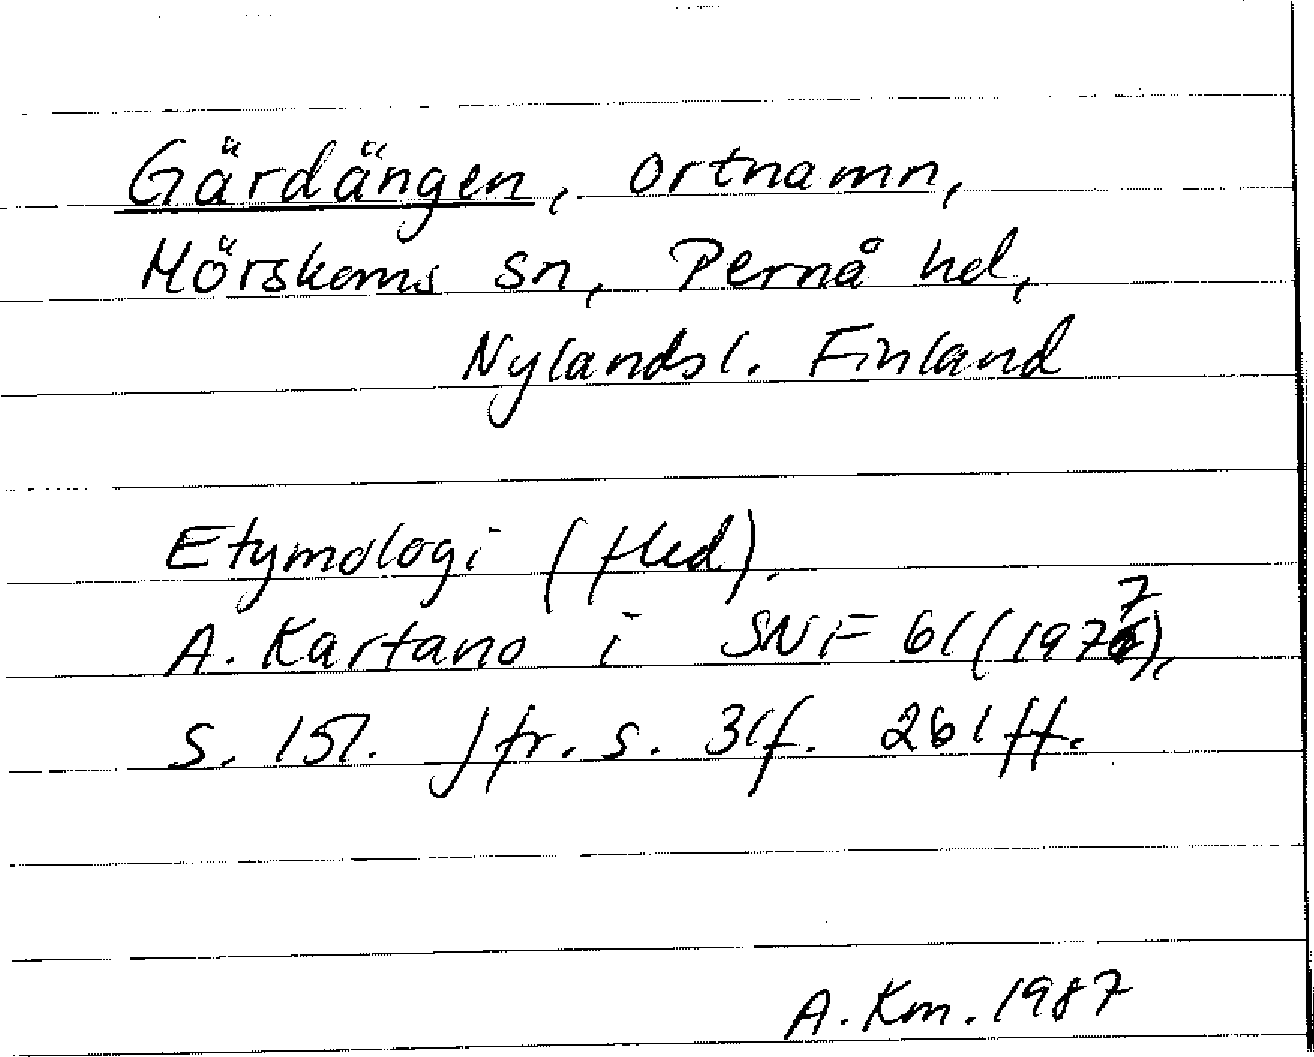 Gärdängen, ortnamn,
Mörskoms sn, Pernå hd,
Nylandsl. Finland
Etymologi (fled).
A. Kartano i SNF 61 (1977),
s. 151. Jfr. s. 31f. 261ff.
A. Km. 1987